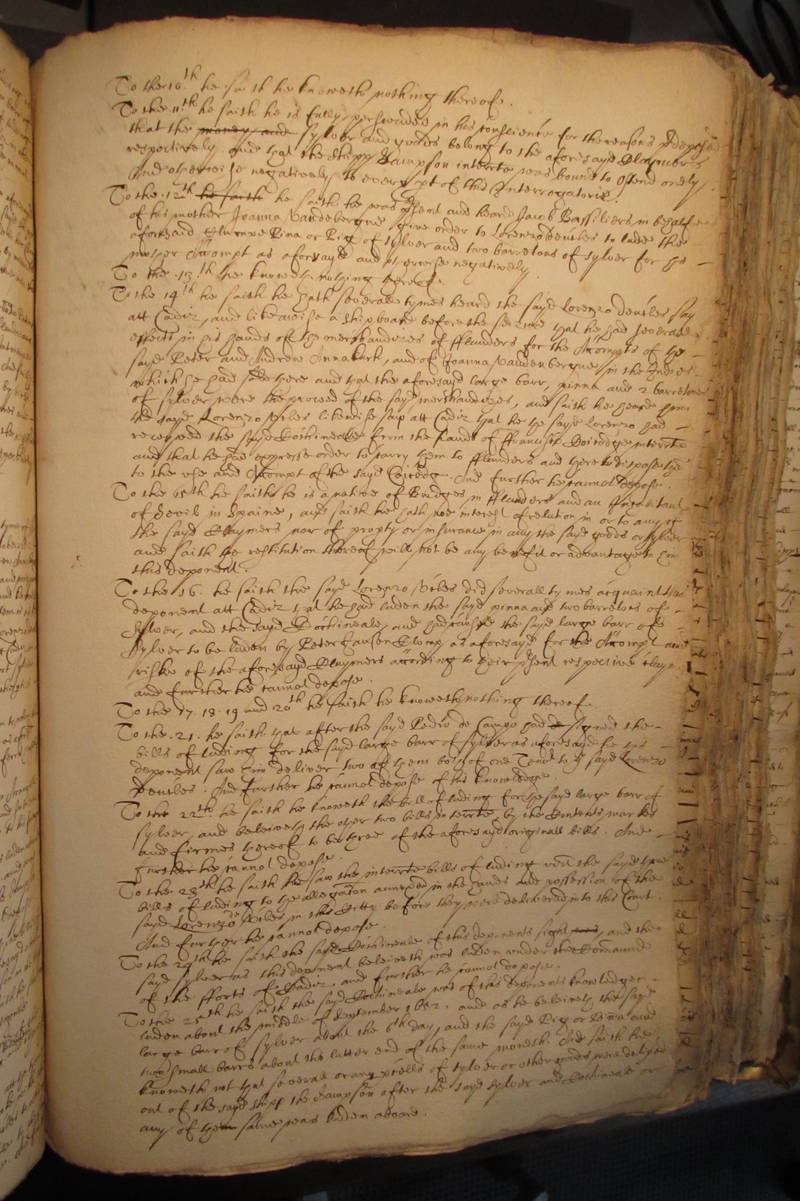 To the 10th he saith he knoweth nothing thereof.
To the 11th he saith he is fully perswaded in his conscience for the reasons deposed
that the money and sylver and goodes belong to the aforesayd Claymers
respectively and that the shipp Sampson interrte was bound to Ostend onely
And otherwise negatively to every pt of this Interrogatorie.
To the 12th he saith he saith he was pnt and heard Jacob Bassiliers in behalfe
of his mother Joanna Vandebergue give order to Lorenzo deniles to lade the
aforesaid Pina or Pig of sylver and two barretons of sylver for his
mother Accompt as aforesayd and otherwise negatively.
To the 13th he knoweth nothing thereof.
To the 14th he saith he hath severall tymes heard the sayd Lorenzo deniles say
att Cadiz, and likewise a shipboard before the seizure that he had severall
effects in his hands of the merchandizes of fflanders for the Accompts of the
sayd Peter and Andrew and of Joanna Vandenbergue in the Indies
which he had sold there and that the aforesayd large barr, pinna and 2 barretons
of sylver were the proceed of the sayd merchandizes, and saith he heard him
the sayd Lorenzo likewise say att Cadiz that he the sayd Lorenzo had
receyved the sayd Cochineale from the hands of ffrancisco interrte
and that he gave expresse order to carry them to fflanders and there to dispose them
to the use and Accompt of the sayd And further he cannot depose.
To the 15th he saith he is a native of Bridges in fflanders and an Inhabitant
of Sevill in Spaine, and saith he hath noe interest of relation in or to any of
the sayd Claymers nor of propty or insurance in any the sayd goods or sylver
and saith the restitution thereof will not be any benefit or advantage to him
this deponent.
To the 16. he saith the sayd Lorenzo did severall tymes acquaint this
deponent att Cadiz that he had laden the sayd pinna and two barretons of
Sylver, and the sayd Cochineale, and had caused the sayd large barr of
Sylver to be laden by Peter as aforesayd for the Accompt and
riske of the aforesayd Claymers according to their pticul respective
and further he cannot depose.
To the 17. 18. 19 and 20th he saith he knoweth nothing thereof.
To the 21. he saith that after the sayd Pedro de Campo had signed the
bills of lading for the sayd large barr of sylver as aforesayd he this
deponent saw him deliver two of them both of one Tenor to the sayd Lorenzo
Deniles. And further he cannot depose of his knowledge.
To the 22th he saith he knoweth the bill of lading for the sayd large barr of
sylver, and beleiveth the other two bills interrte by the markes
and firmes thereof to be three of the aforesayd originall bills. And
further he cannot depose.
To the 23th he saith he saw the interrte bills of lading and the sayd three
bills of lading to the allegation annexed in the hands and possession of the
sayd Lorenzo in this Citty before they were delivered into this Court.
And further he cannot depose.
To the 24th he saith the sayd Cochineale of this deponents sight and the
sayd sylver as this deponent beleiveth was laden under the Command
of the fforts of Cadiz and further he cannot depose.
To the 25th he saith the sayd Cochineale was of this deponents knowledge
laden about the middle of September 1652. and as he beleiveth the sayd
large barr of sylver about the 6th day, and the sayd Pig or Pina and
two small barrs about the latter end of the same moneth. And saith he
knoweth not that severall or any pcells of sylver or other goods were delivered
out of the sayd shipp the Sampson after the sayd sylver and Cochineale or
any of them same was laden aboard.